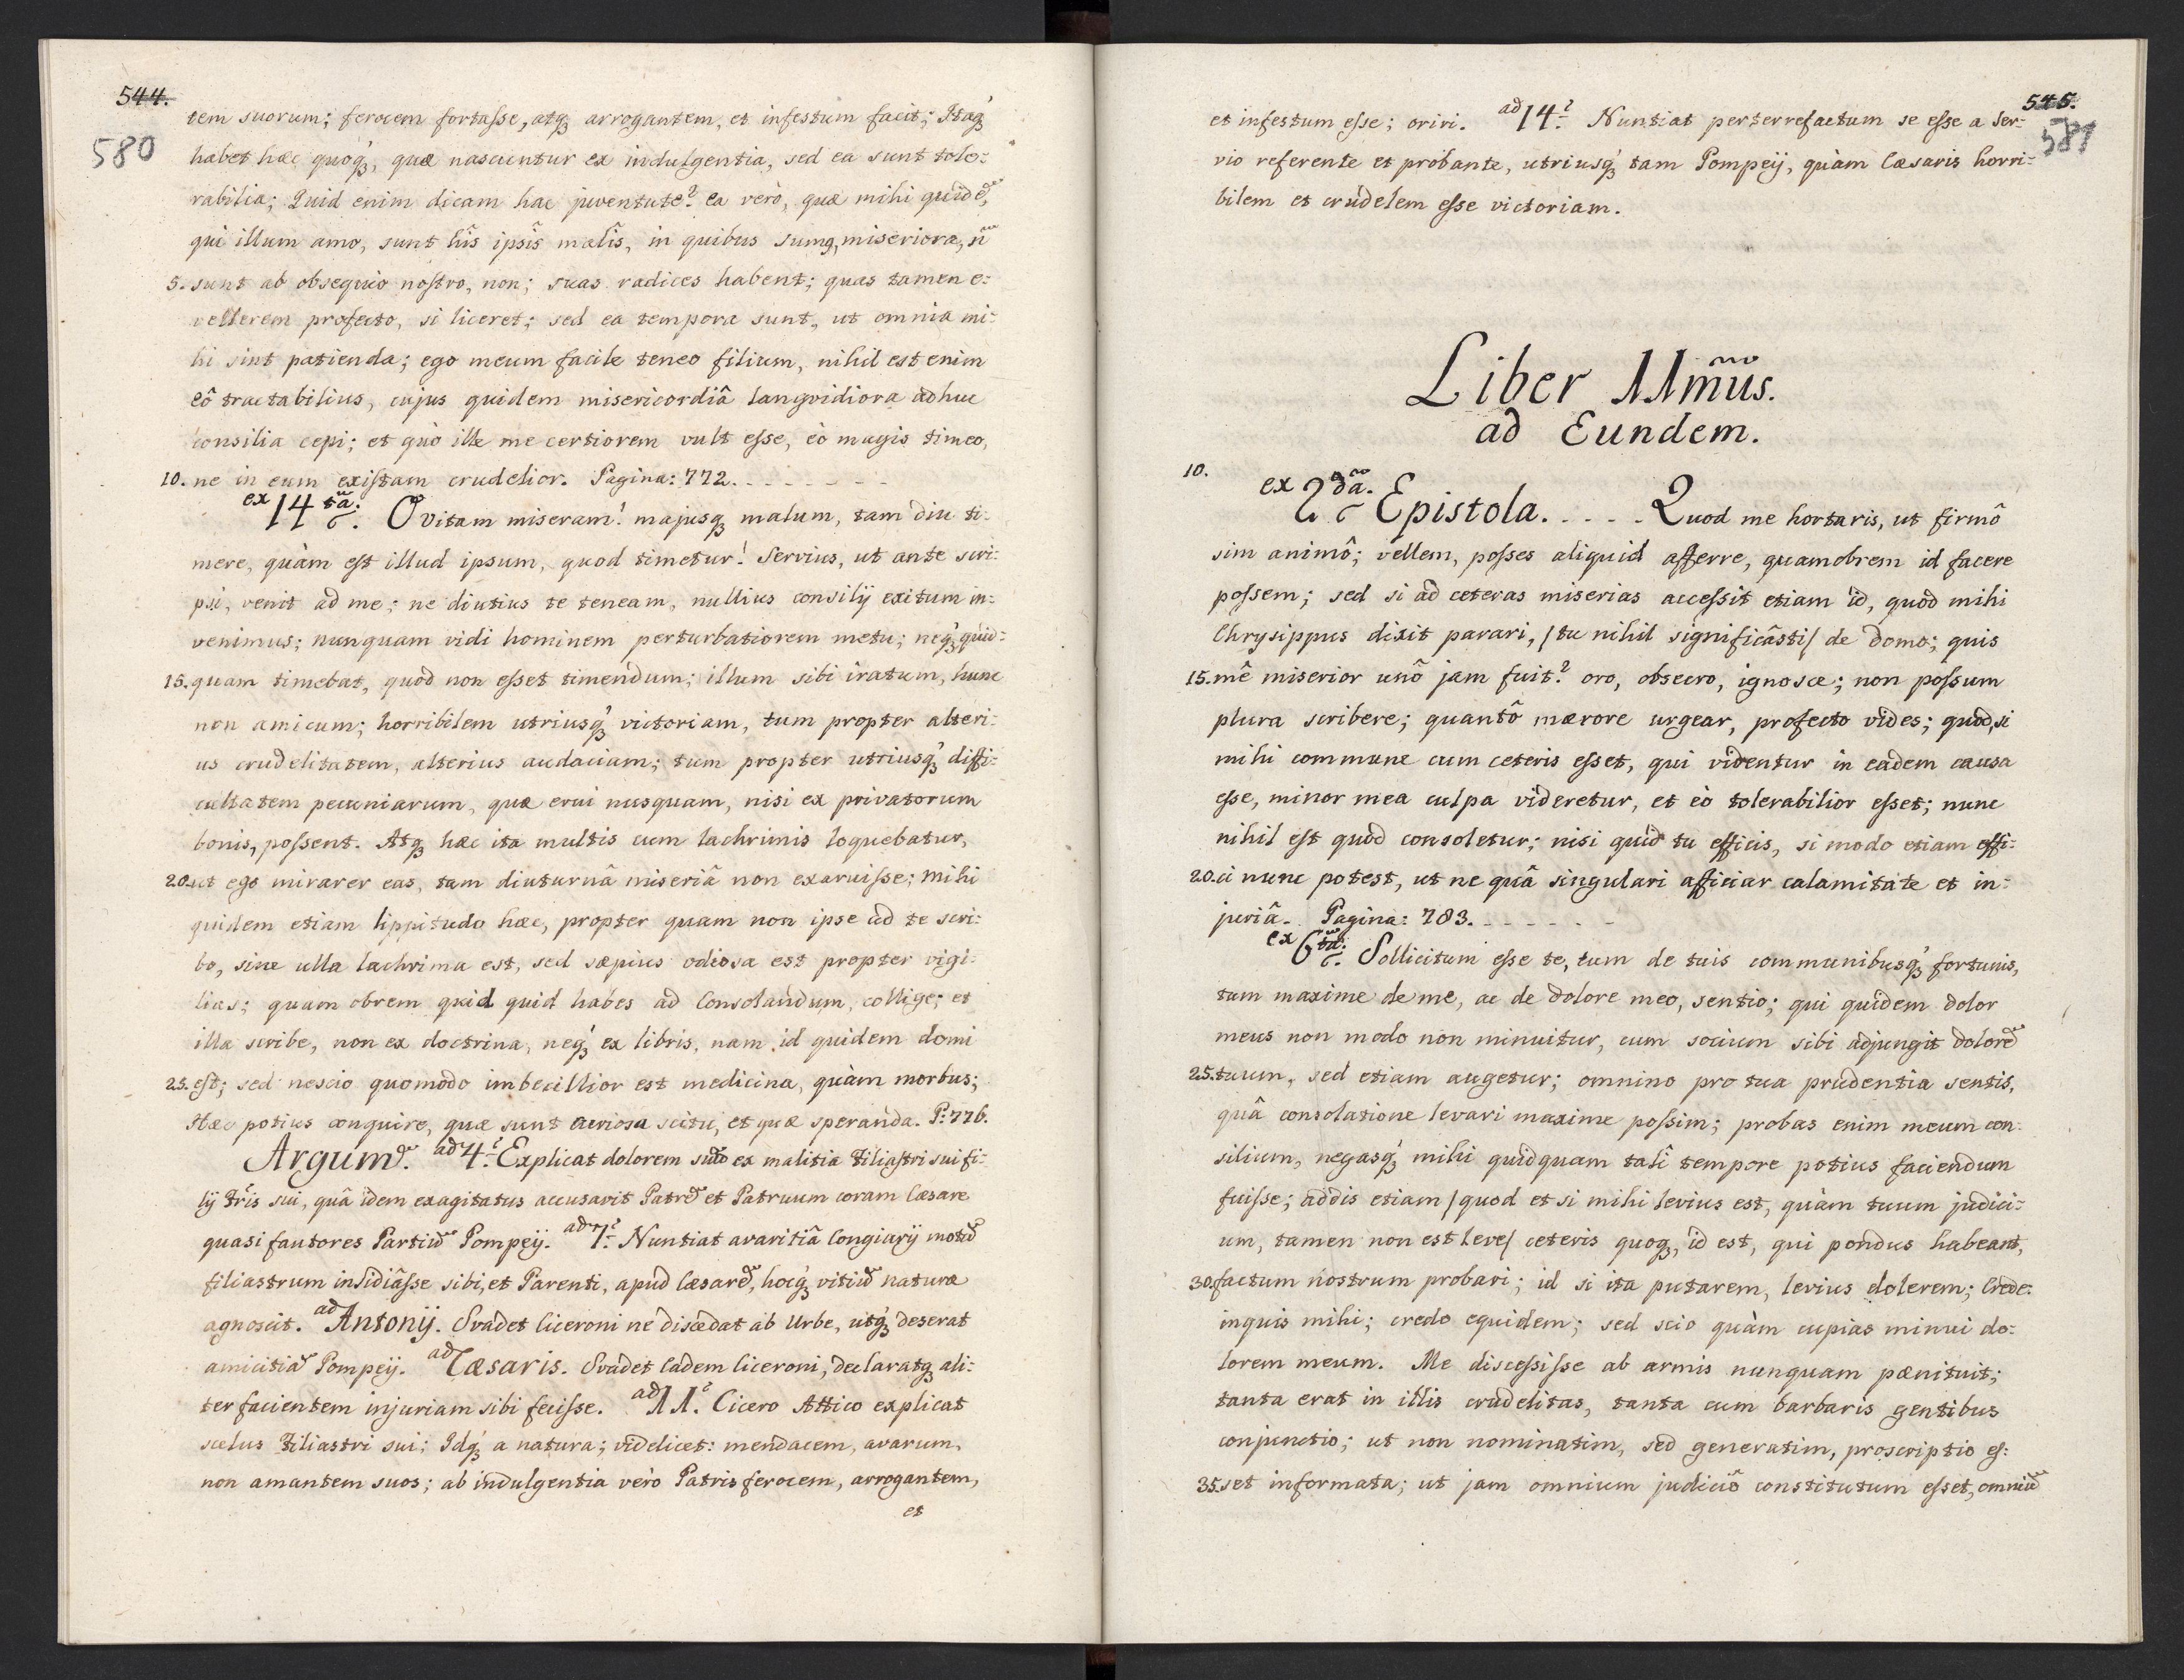 544.
580
tem suorum; ferocem fortaſse, atqꝫ arrogantem, et infestum facit; Itaqꝫ
habet hæc quóqꝫ, quæ nascuntur ex indulgentia, sed ea sunt tole:
rabilia; Quid enim dicam hac juventute? ea verò, quæ mihi quidẽ,
qui illum amo, sunt hîs ipsîs malîs, in quibus sumꝯ, miseriora, ñ
5. sunt ab obsequio nostro, non; suas radices habent; quas tamen e:
vellerem profecto, si liceret; sed ea tempora sunt, ut omnia mi:
hi sint patienda; ego meum facile teneo filium, nihil est enim
eô tractabilius, cujus quidem misericordiâ langvidiora adhuc
consilia cepi; et quò ille me certiorem vult eſse, eò magis timeo,
10. ne in eum existam crudelior. Pagina: 772. - - - - - - -
ex 14tã: O vitam miseram! majusqꝫ malum, tam diu ti:
mere, quàm est illud ipsum, quod timetur! Servius, ut ante scri:
psi, venit ad me; ne diutius te teneam, nullius consilij exitum in:
venimus; nunquam vidi hominem perturbatiorem metu; neqꝫ quid:
15. quam timebat, quod non eſset timendum; illum sibi iratum, hunc
non amicum; horribilem utriusqꝫ victoriam, tum propter alteri:
us crudelitatem, alterius audaciam; tum propter utriusqꝫ diffi:
cultatem pecuniarum, quæ erui nusquam, nisi ex privatorum
bonis, poſsent. Atqꝫ hæc ita multis cum lachrimis loquebatur,
20. ut ego mirarer eas, tam diuturnâ miseriâ non exaruiſse; mihi
quidem etiam lippitudo hæc, propter quam non ipse ad te scri:
bo, sine ulla lachrima est, sed sæpius odiosa est propter vigi:
lias; quam obrem quid quid habes ad Consolandum, collige; et
illa scribe, non ex doctrina, neqꝫ ex libris, nam id quidem domi
25. est; sed nescio quomodo imbecillior est medicina, quàm morbus;
Hæc potius conquire, quæ sunt curiosa scitu, et quæ speranda. P: 776.
Argum̃. ad 4.? Explicat dolorem suũ ex malitia Filiastri sui fi:
lij Frĩs sui, quâ idem exagitatus accusavit Patrẽ et Patruum coram Cæsare
quasi fautores Partiũ Pompeij. ad 7.? Nuntiat avaritiâ Congiarij motũ
filiastrum insidiâſse sibi, et Parenti, apud Cæsarẽ, hocqꝫ vitiũ naturæ
agnoscit. ad Antonij. Svadet Ciceroni ne discedat ab Urbe, utqꝫ deserat
amicitiã Pompeij. ad Cæsaris. Svadet Eadem Ciceroni, declaratqꝫ ali:
ter facientem injuriam sibi feciſse. ad 11.? Cicero Attico explicat
scelus Filiastri sui; Idqꝫ a natura; videlicet: mendacem, avarum,
non amantem suos; ab indulgentia verò Patris ferocem, arrogantem,
et
545.
581
et infestum eſse; oriri. ad 14.? Nuntiat perterrefactum se eſse a Ser:
vio referente et probante, utriusqꝫ tam Pompeij, quàm Cæsaris horri:
bilem et crudelem eſse victoriam.
Liber 11mũs.
ad Eundem.
10.
ex 2dã. Epistola. - - - - Quod me hortaris, ut firmô
sim animô; vellem, poſses aliquid afferre, quamobrem id facere
poſsem; sed si ad ceteras miserias acceſsit etiam id, quod mihi
Chrysippus dixit parari, /tu nihil significâsti/ de domo; quis
15. mê miserior unô jam fuit? oro, obsecro, ignosce; non poſsum
plura scribere; quantô mærore urgear, profecto vides; quod, si
mihi commune cum ceteris eſset, qui videntur in eadem causa
eſse, minor mea culpa videretur, et eò tolerabilior eſset; nunc
nihil est quod consoletur; nisi quid tu efficis, si modo etiam effi:
20. ci nunc potest, ut ne quâ singulari afficiar calamitate et in:
juriâ. Pagina: 783. - - - - - -
ex 6tã: Sollicitum eſse te, tum de tuis communibusqꝫ fortunis,
tum maxime de me, ac de dolore meo, sentio; qui quidem dolor
meus non modo non minuitur, cum socium sibi adjungit dolorẽ
25. tuum, sed etiam augetur; omnino pro tua prudentia sentis,
quâ consolatione levari maxime poſsim; probas enim meum con:
silium, negasqꝫ mihi quidquam talî tempore potius faciendum
fuiſse; addis etiam /quod et si mihi levius est, quàm tuum judici:
um, tamen non est leve/ ceteris quoqꝫ, id est, qui pondus habeant,
30. factum nostrum probari; id si ita putarem, levius dolerem; Crede:
inquis mihi; credo equidem; sed scio quàm cupias minui do:
lorem meum. Me disceſsiſse ab armis nunquam pænituit;
tanta erat in illis crudelitas, tanta cum barbaris gentibus
conjunctio; ut non nominatim, sed generatim, proscriptio eſ:
35. set informata; ut jam omnium judiciô constitutum eſset, omniũ